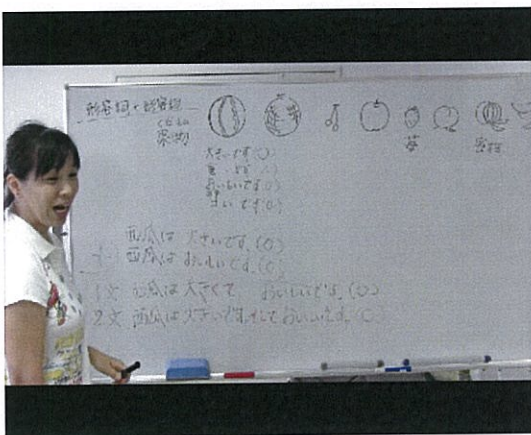 形容詞+形容詞
くだもの
果物
苺 蜜柑
大きいです(○)
重いです(○)
おいしいです(○)
です(○)
西瓜は 大きいです。(○)
西瓜は おいしいです。(○)
1文 西瓜は大きくて おいしいです。(○)
2文 西瓜は大きいです。そして おいしいです。(○)